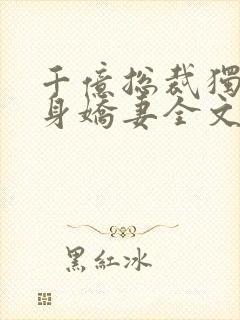 千億總裁獨
身嬌妻全文
黑紅冰